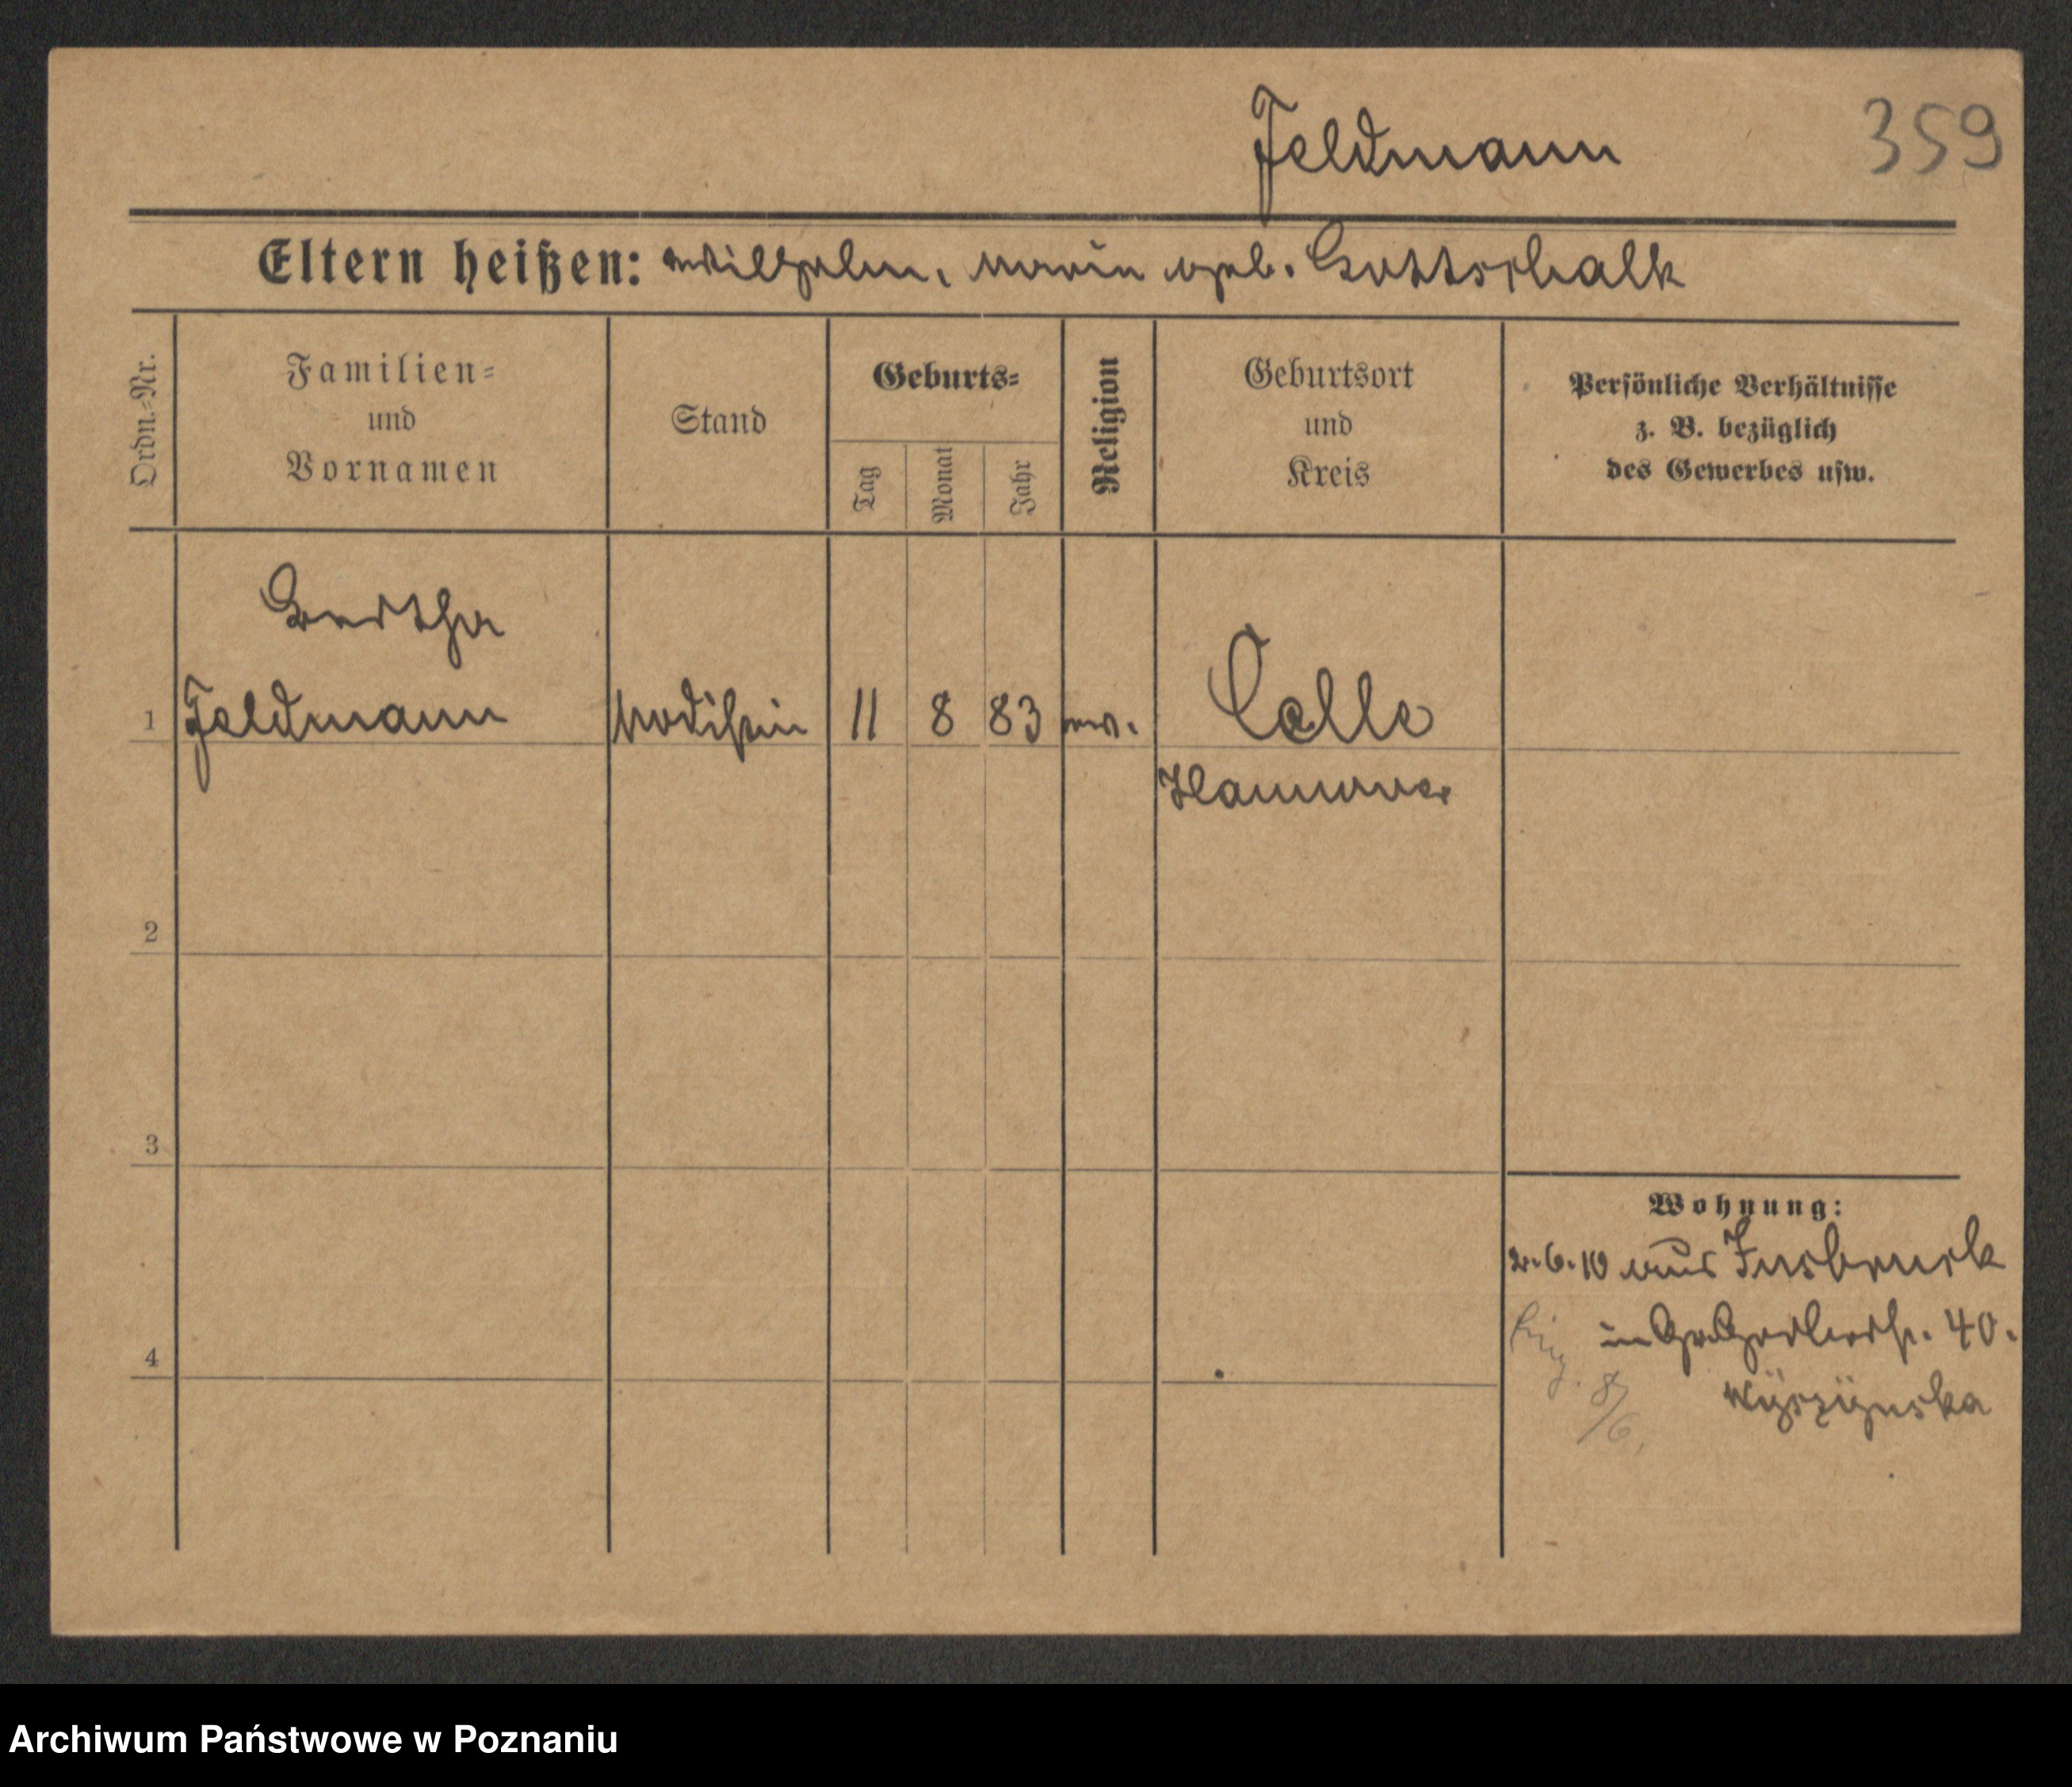 Feldmann
359
Eltern heißen: Wilhelm, Marie geb. Gottschalk
Ordn.=Nr.
Familien=
und
Vornamen
Stand
Geburts=
Tag
Monat
Jahr
Religion
Geburtsort
und
Kreis
Persönliche Verhältnisse
z. B. bezüglich
des Gewerbes usw.
Bertha
1 Feldmann Modistin 11 8 83 ev. Celle
Hannover
2
3
4
Wohnung:
2.6.10 aus Insbruck
in 40.
8/6.
Wyszynska
Archiwum Państwowe w Poznaniu